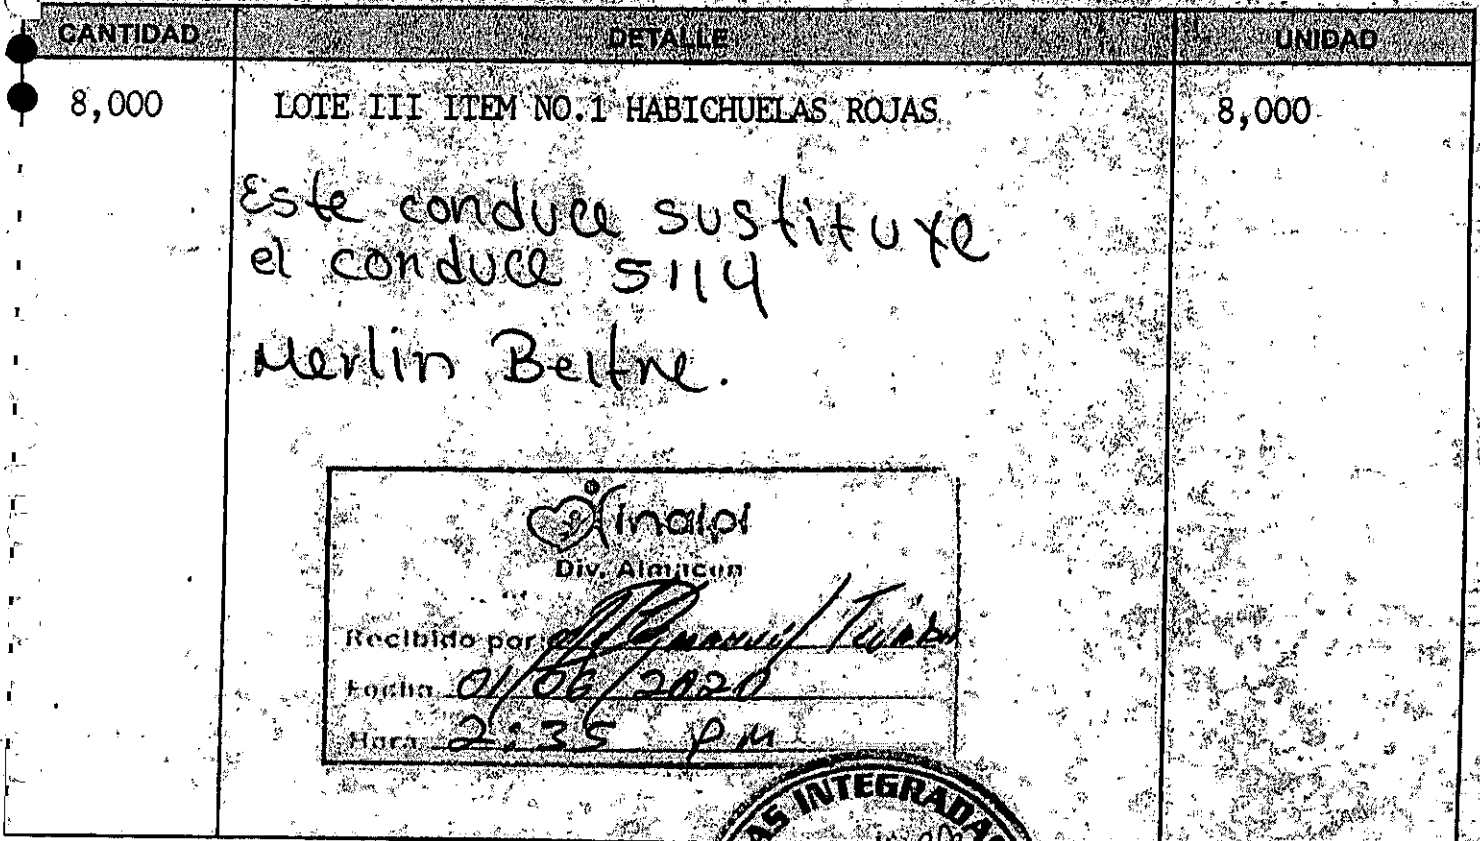 CANTIDAD DETALLE UNIDAD
8,000 LOTE III ITEM NO.1 HABICHUELAS ROJAS 8,000
Este conduce sustituye
el conduce 5114
Merlin Beltre.
inaipi
Div. Almacen
Recibido por
Fecha 01/06/2020
Hora 2:35 PM
AS INTEGRADAS